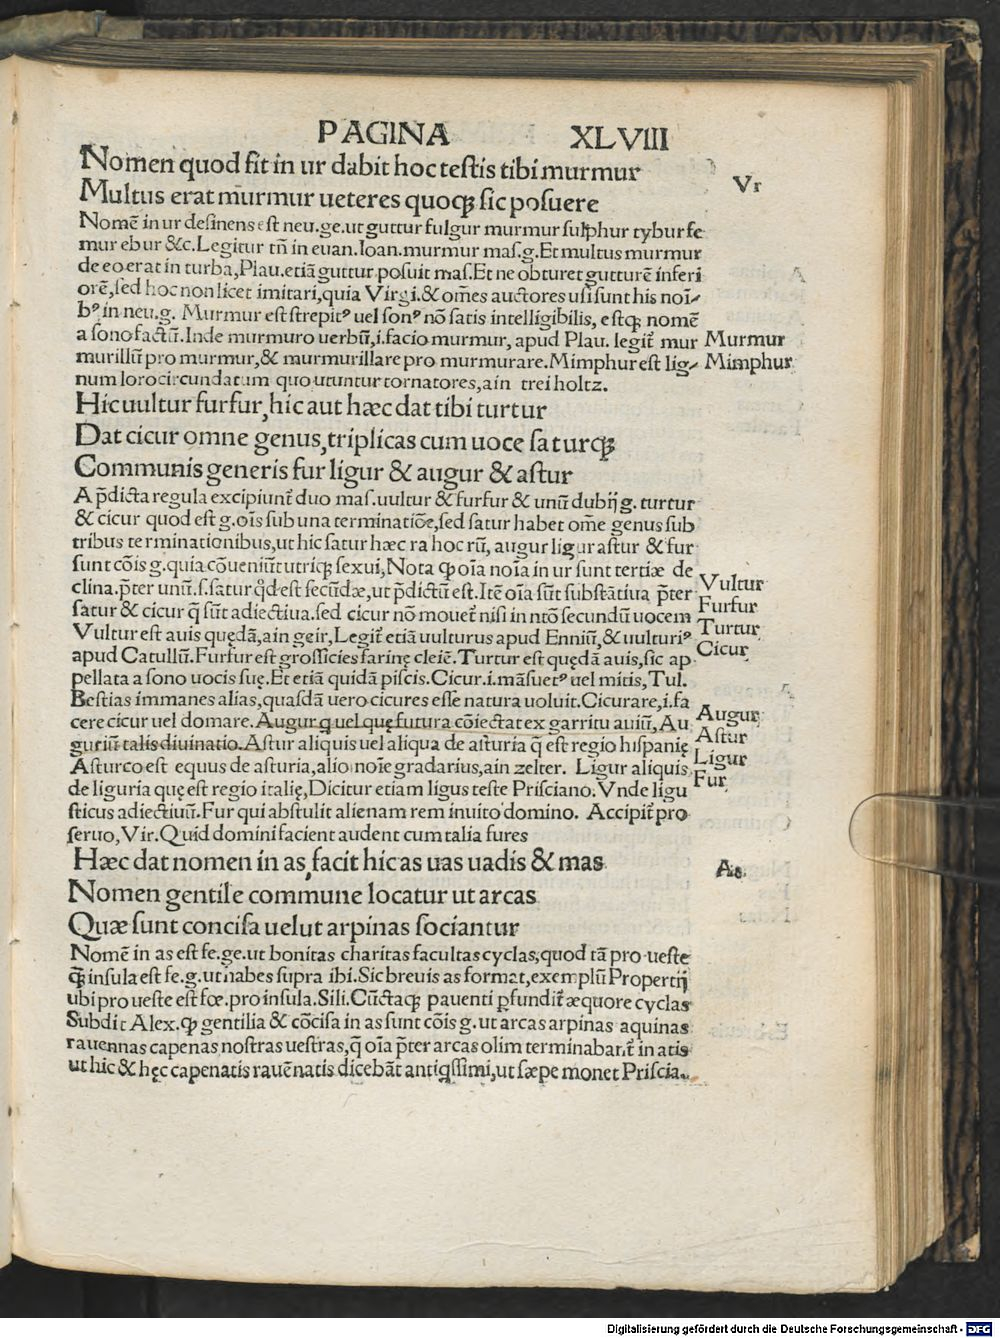 PAGINA XLVIII
Nomen quod fit in ur dabit hoc testis tibi murmur
Vr
Multus erat murmur ueteres quoqꝫ sic posuere
Nomē in ur desinens est neu.ge.ut guttur fulgur murmur sulphur tybur fe
mur ebur &c. Legitur tn̄ in euan. Ioan. murmur mas.g. Et multus murmur
de eo erat in turba, Plau. etiā guttur posuit mas. Et ne obturet gutturē inferi
orē, sed hoc non licet imitari, quia Virgi. & oēs auctores usi sunt his noī-
bꝰ in neu.g. Murmur est strepitꝰ uel sonꝰ nō satis intelligibilis, estqꝫ nomē
a sono factū. Inde murmuro uerbū, i. facio murmur, apud Plau. legit̄ mur
Murmur
murillū pro murmur, & murmurillare pro murmurare. Mimphur est lig-
Mimphur
num loro circundatum quo utuntur tornatores, ain trei holtz.
Hic uultur furfur, hic aut hæc dat tibi turtur
Dat cicur omne genus, triplicas cum uoce saturqꝫ
Communis generis fur ligur & augur & astur
A p̄dicta regula excipiunt̄ duo mas. uultur & furfur & unū dubij g. turtur
& cicur quod est g. oīs sub una terminatiōe, sed satur habet om̄e genus sub
tribus terminationibus, ut hic satur hæc ra hoc rū, augur ligur astur & fur
sunt cōis g. quia cōueniūt utriqꝫ sexui, Nota ꝙ oīa noīa in ur sunt tertiæ de
clina. p̄ter unū .s. satur qd̄ est secūdæ, ut p̄dictū est. Itē oīa sūt substātiua p̄ter
Vultur
satur & cicur q̄ sūt adiectiua. sed cicur nō mouet̄ nisi in ntō secundū uocem
Furfur
Vultur est auis quędā, ain geir, Legit̄ etiā uulturus apud Enniū, & uulturiꝰ
Turtur
apud Catullū. Furfur est grossicies farinę cleiē. Turtur est quędā auis, sic ap
Cicur
pellata a sono uocis suę. Et etiā quidā piscis. Cicur .i. māsuetꝰ uel mitis, Tul.
Bestias immanes alias, quasdā uero cicures esse natura uoluit. Cicurare, i. fa
cere cicur uel domare. Augur q uel quę futura cōiectat ex garritu auiū, Au
Augur
guriū talis diuinatio. Astur aliquis uel aliqua de asturia q̄ est regio hispanię
Astur
Asturco est equus de asturia, alio noīe gradarius, ain zelter. Ligur aliquis
Ligur
de liguria quę est regio italię, Dicitur etiam ligus teste Prisciano. Vnde ligu
Fur
sticus adiectiuū. Fur qui abstulit alienam rem inuito domino. Accipit̄ pro
seruo, Vir. Quid domini facient audent cum talia fures
Hæc dat nomen in as, facit hic as uas uadis & mas
As
Nomen gentile commune locatur ut arcas
Quæ sunt concisa uelut arpinas sociantur
Nomē in as est fe.ge. ut bonitas charitas facultas cyclas, quod tā pro ueste
q̄ꝫ insula est fe.g. ut habes supra ibi. Sic breuis as format, exemplū Propertij
ubi pro ueste est fœ. pro insula. Sili. Cūctaqꝫ pauenti ꝑfundit̄ æquore cyclas
Subdit Alex. ꝙ gentilia & cōcisa in as sunt cōis g. ut arcas arpinas aquinas
rauennas capenas nostras uestras, q̄ oīa p̄ter arcas olim terminabant̄ in atis
ut hic & hęc capenatis rauēnatis dicebāt antiqssimi, ut sæpe monet Priscia.
Digitalisierung gefördert durch die Deutsche Forschungsgemeinschaft - DFG